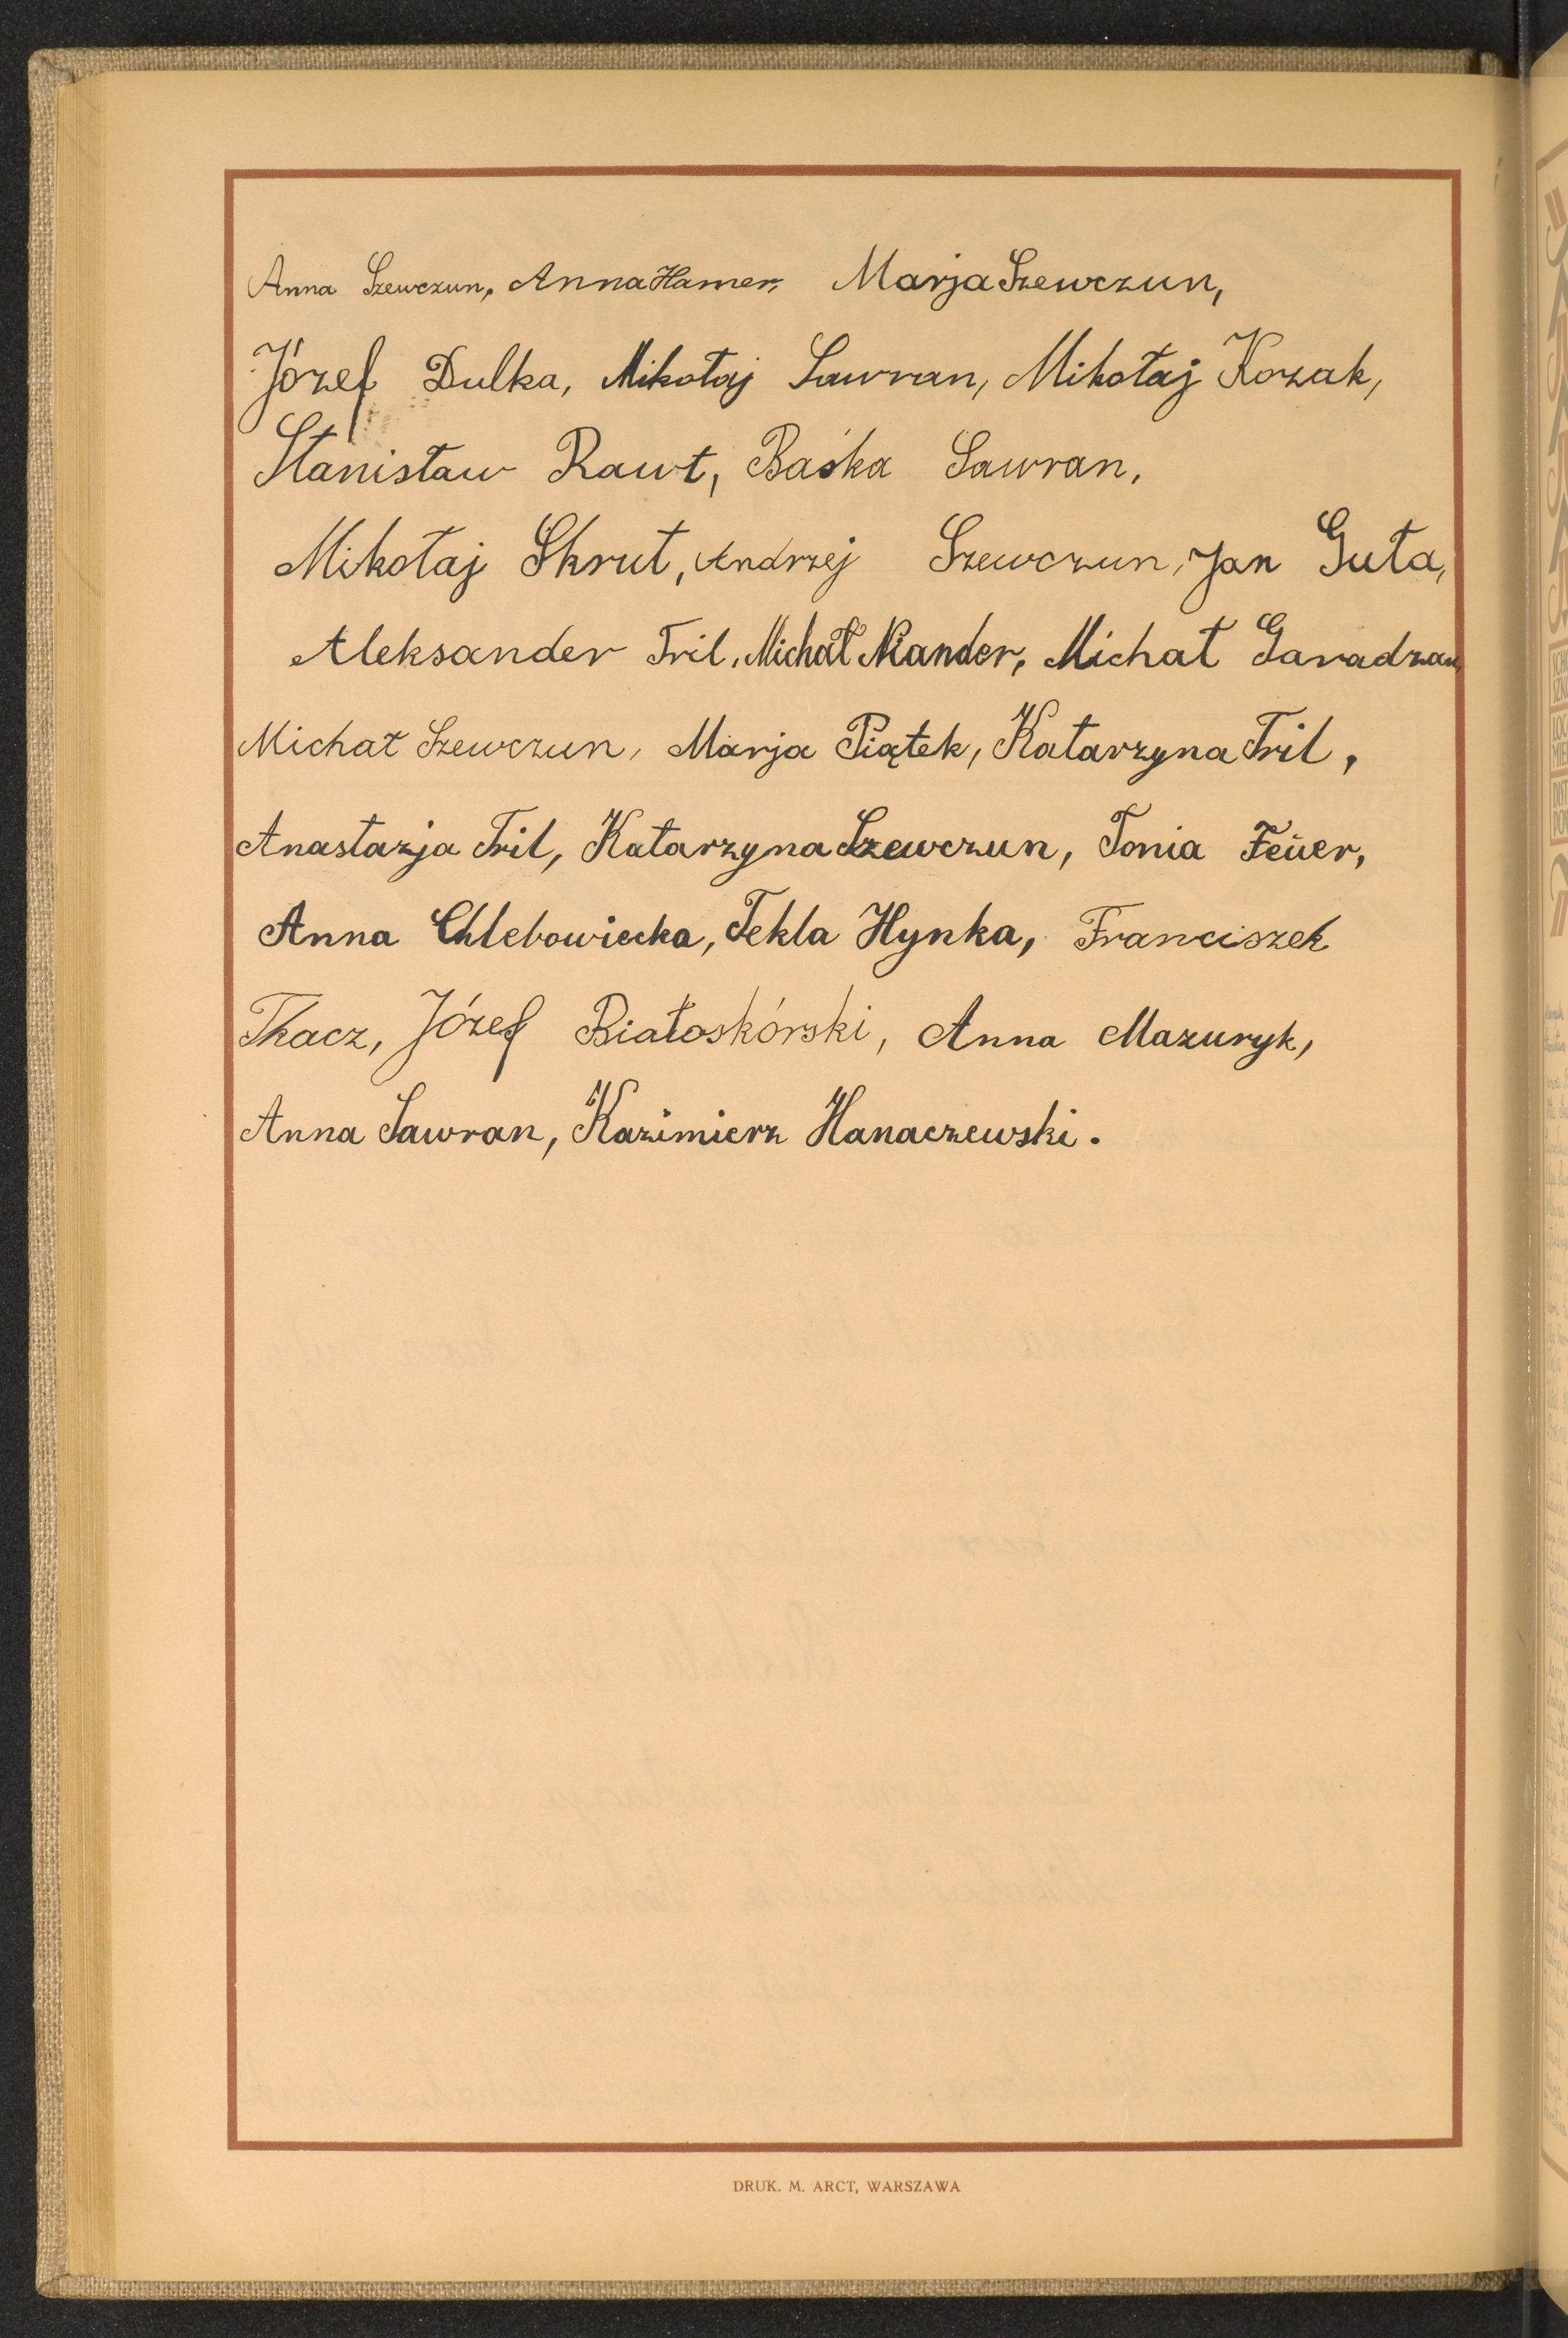 Anna Szewczun, Anna Hamer, Marja Szewczun,
Józef Dulka, Mikołaj Sawran, Mikołaj Kozak,
Stanisław Rawt, Baśka Sawran,
Mikołaj Skrut, Andrzej Szewczun, Jan Guta,
Aleksander Tril, Michał Niander, Michał Garadzan
Michał Szewczun, Marja Piątek, Katarzyna Tril,
Anastazja Tril, Katarzyna Szewczun, Tonia Feuer,
Anna Chlebowiecka, Tekla Hynka, Franciszek
Tkacz, Józef Białoskórski, Anna Mazuryk,
Anna Sawran, Kazimierz Hanaczewski.
DRUK. M. ARCT, WARSZAWA